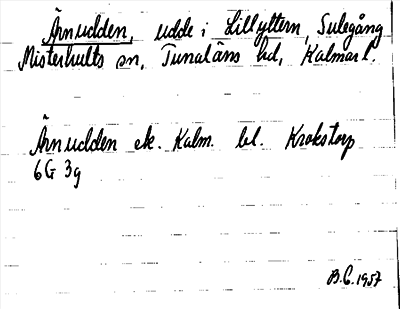 Ärnudden, udde i Lillyttern, Sulegång
Misterhults sn, Tunaläns hd, Kalmar l.
Ärnudden ek. Kalm. bl. Krokstorp
6G 3g
B.C. 1957